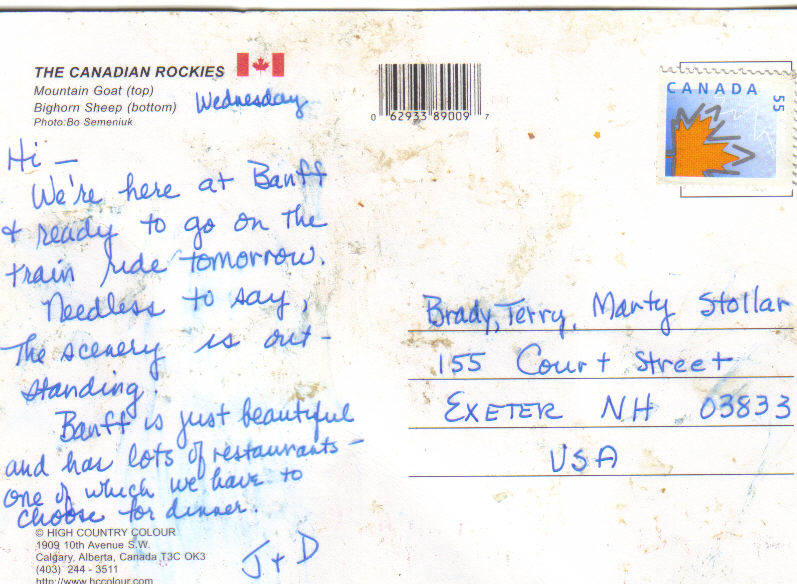 THE CANADIAN ROCKIES
Mountain Goat (top)
Bighorn Sheep (bottom)
Photo:Bo Semeniuk
Wednesday
0 62933 89009 7
CANADA 55
Hi —
We're here at Banff
+ ready to go on the
train ride tomorrow.
Needless to say,
the scenery is out-
standing.
Banff is just beautiful
and has lots of restaurants —
one of which we have to
choose for dinner.
J + D
Brady, Terry, Marty Stollar
155 Court Street
EXETER NH 03833
USA
© HIGH COUNTRY COLOUR
1909 10th Avenue S.W.
Calgary, Alberta, Canada T3C OK3
(403) 244 - 3511
http://www.hccolour.com